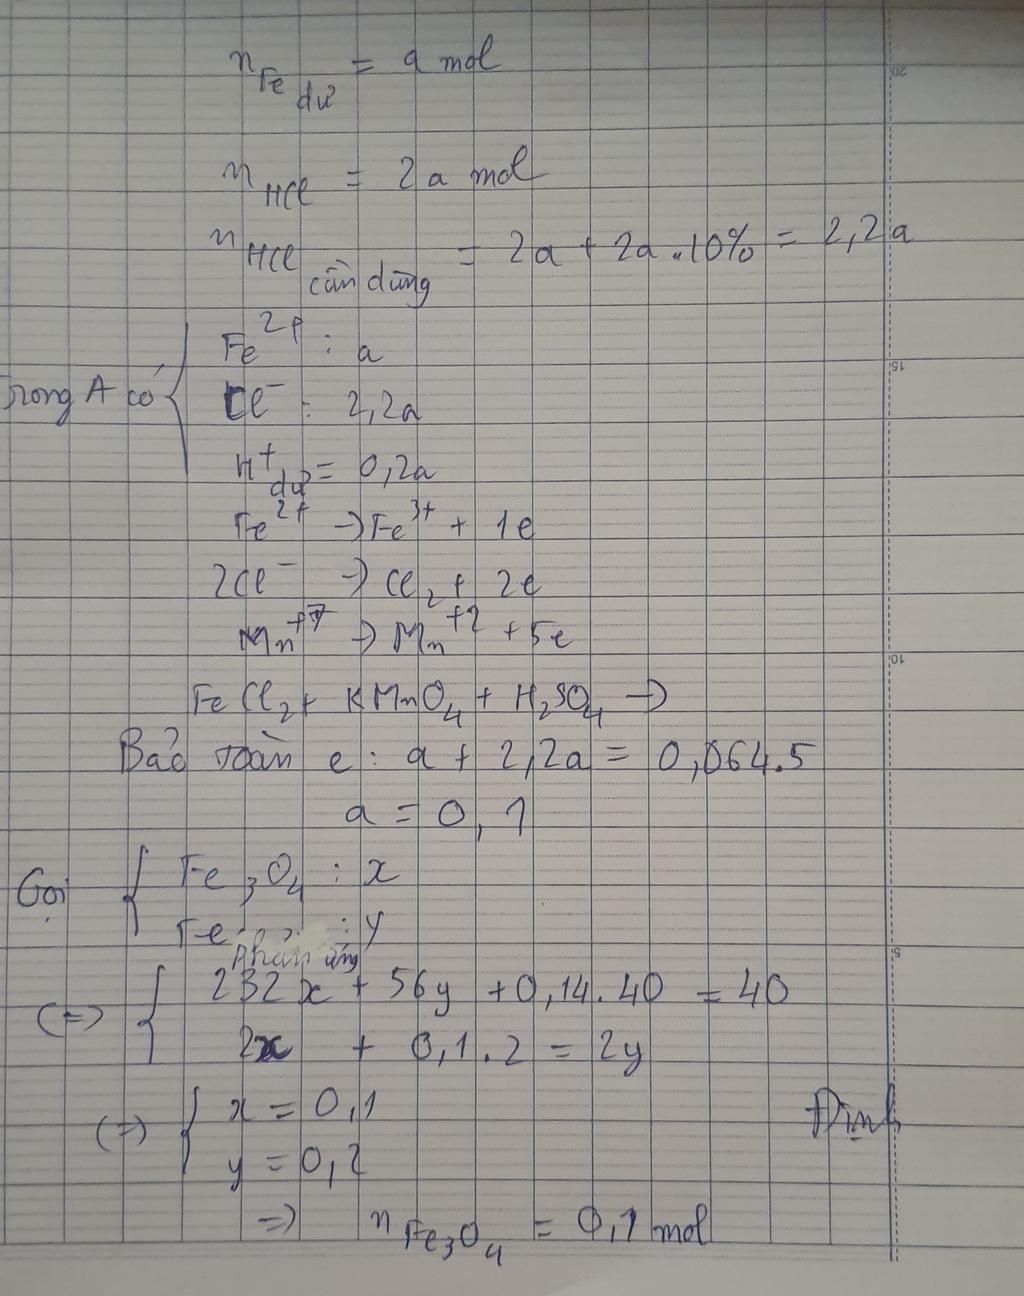 n Fe dư = a mol
n HCl = 2a mol
n HCl cần dùng = 2a + 2a.10% = 2,2a
Trong A có { Fe²⁺ : a
Cl⁻ : 2,2a
H⁺ dư = 0,2a
Fe²⁺ → Fe³⁺ + 1e
2Cl⁻ → Cl₂ + 2e
Mn⁺⁷ → Mn⁺² + 5e
FeCl₂ + KMnO₄ + H₂SO₄ →
Bảo toàn e : a + 2,2a = 0,064.5
a = 0,1
Gọi { Fe₃O₄ : x
Fe phản ứng : y
(=) { 232x + 56y + 0,14.40 = 40
2x + 0,1.2 = 2y
(=) { x = 0,1
Định
y = 0,2
=> n Fe₃O₄ = 0,1 mol
20
15
10
5